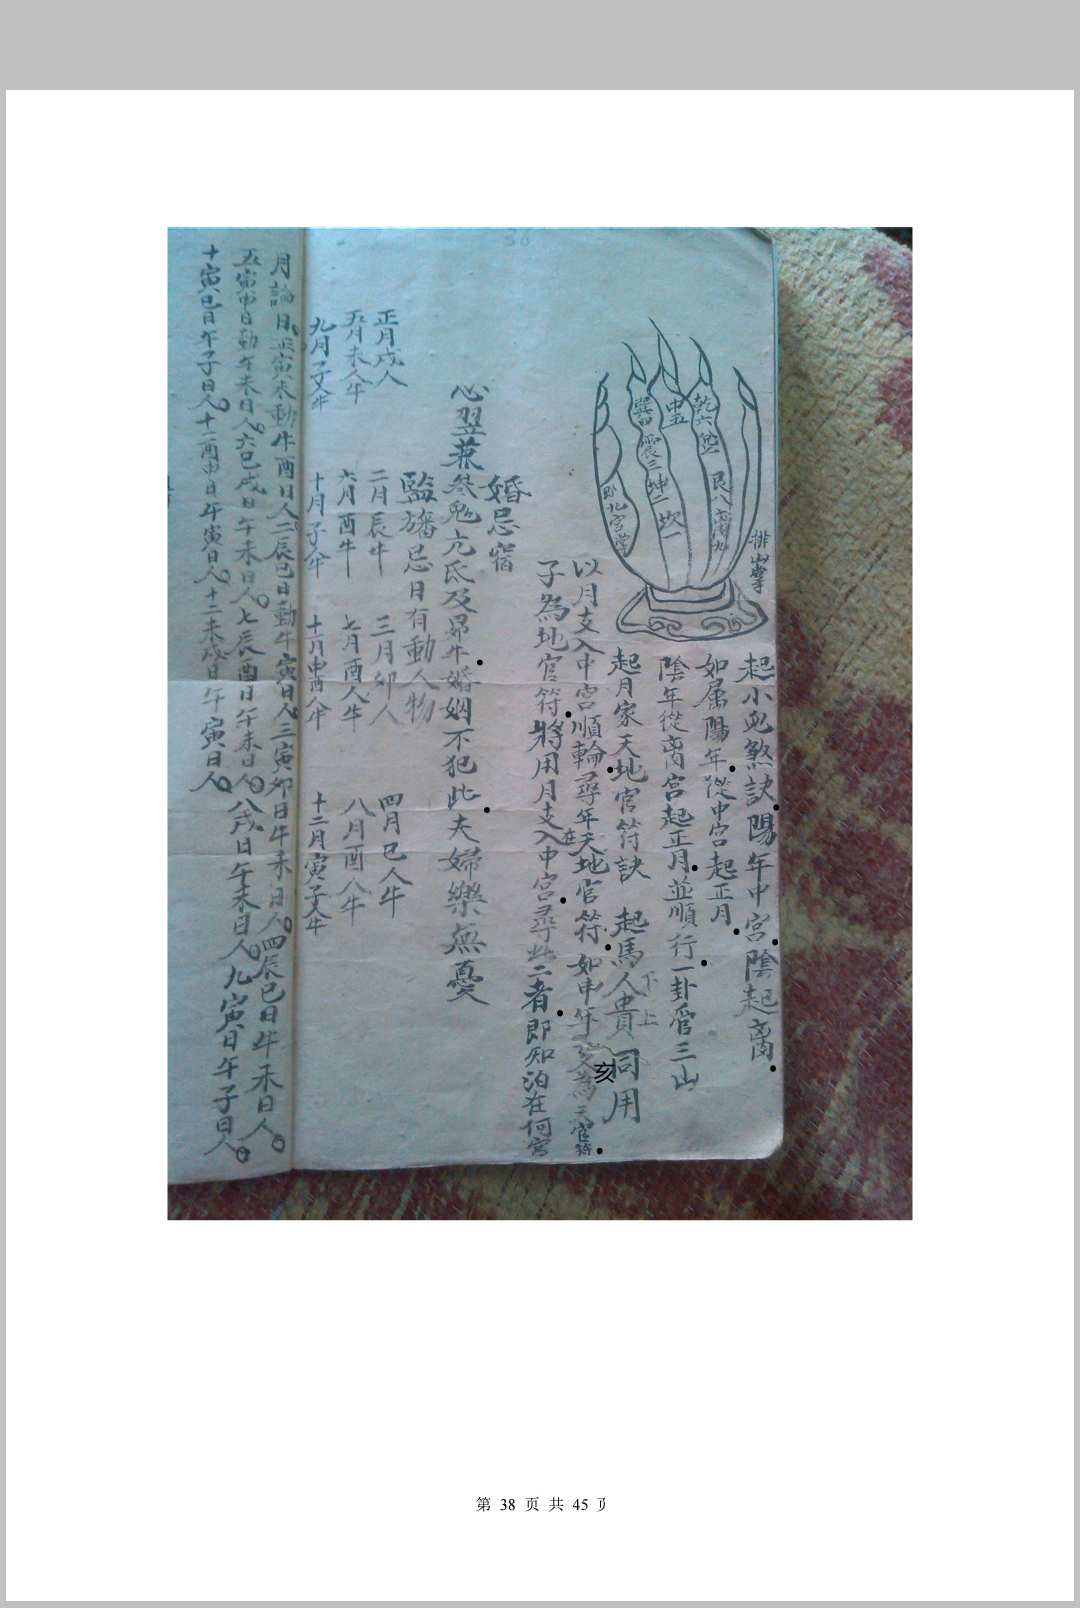 36
排山掌
乾六
艮八離九
中五
坎一
巽四
震三坤二
即九宮掌
起小兒煞訣陽年中宮陰起离
如属陽年從中宮起正月
陰年從离宮起正月並順行一卦管三山
起月家天地官符訣 起馬人貴同用
下上
以月支入中宮順輪尋年天地官符如申年亥為天官符
在
子為地官符將用月支入中宮尋此二者即知泊在何宮
婚忌宿
心翌兼參鬼亢氐及昴牛婚姻不犯此夫婦樂無憂
監旛忌日有動人物
正月戌人 二月辰牛 三月卯人 四月巳人牛
五月未人牛 六月酉牛 七月酉人牛 八月酉人牛
九月子人牛 十月子人牛 十一月申酉人牛 十二月寅子人牛
月論日正寅未動牛酉日人二辰巳日動牛寅日人三寅卯日牛未日人四辰巳日牛未日人
五寅申日動牛未日人六巳戌日午未日人七辰酉日午未日人八戌日午未日人九寅日午子日人
十寅巳日午子日人十一酉申日午寅日人十二未戌日午寅日人
第 38 页 共 45